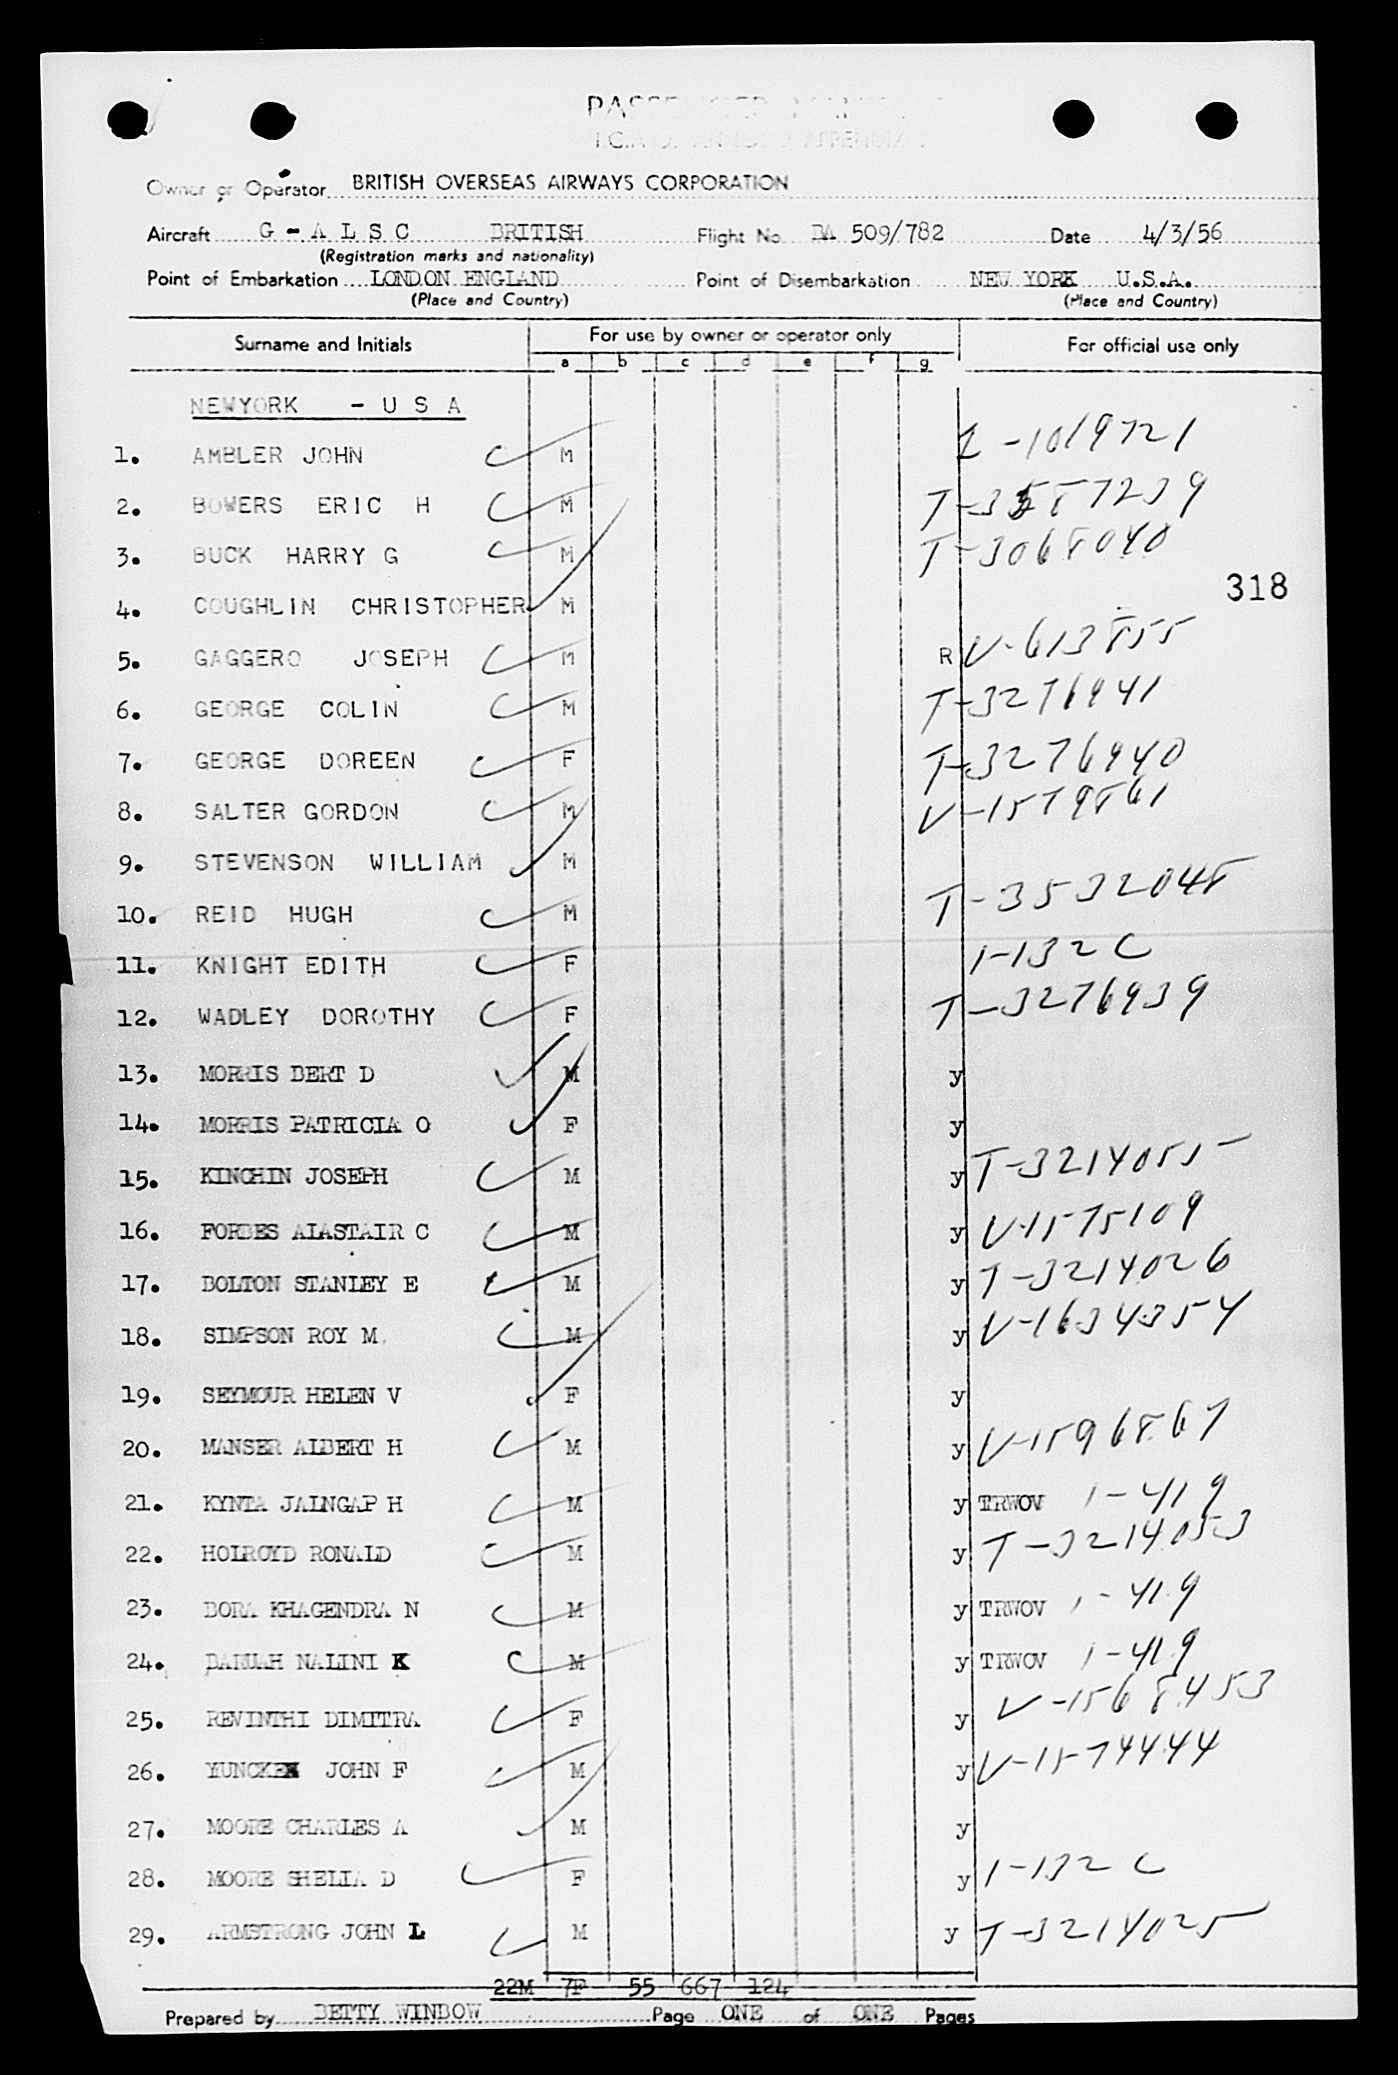 Owner or Operator BRITISH OVERSEAS AIRWAYS CORPORATION
Aircraft G - A L S C BRITISH Flight No BA 509/782 Date 4/3/56
(Registration marks and nationality)
Point of Embarkation LONDON ENGLAND Point of Disembarkation NEW YORK U.S.A.
(Place and Country) (Place and Country)
Surname and Initials For use by owner or operator only For official use only
a b c d e f g
NEWYORK - U S A
1. AMBLER JOHN M 1-1019721
2. BOWERS ERIC H M T-3587239
3. BUCK HARRY G M T-3068040
318
4. COUGHLIN CHRISTOPHER M
5. GAGGERO JOSEPH M R V-613855
6. GEORGE COLIN M T-3276941
7. GEORGE DOREEN F T-3276940
8. SALTER GORDON M V-1579861
9. STEVENSON WILLIAM M
10. REID HUGH M T-3532048
11. KNIGHT EDITH F 1-132 C
12. WADLEY DOROTHY F T-3276939
13. MORRIS BERT D M y
14. MORRIS PATRICIA O F y
15. KINCHIN JOSEPH M y T-3214055
16. FORBES ALASTAIR C M y V-1575109
17. BOLTON STANLEY E M y T-3214026
18. SIMPSON ROY M. M y V-1634354
19. SEYMOUR HELEN V F y
20. MANSER ALBERT H M y V-1596867
21. KYNTA JAINGAP H M y TRWOV 1-419
22. HOLROYD RONALD M y T-3214053
23. BORA KHAGENDRA N M y TRWOV 1-419
24. BARUAH NALINI K M y TRWOV 1-419
25. REVINTHI DIMITRA F y V-1568453
26. YUNCKEN JOHN F M y V-1574444
27. MOORE CHARLES A M y
28. MOORE SHELIA D F y 1-132 C
29. ARMSTRONG JOHN L M y T-3214025
22M 7F 55 667 124
Prepared by BETTY WINDOW Page ONE of ONE Pages